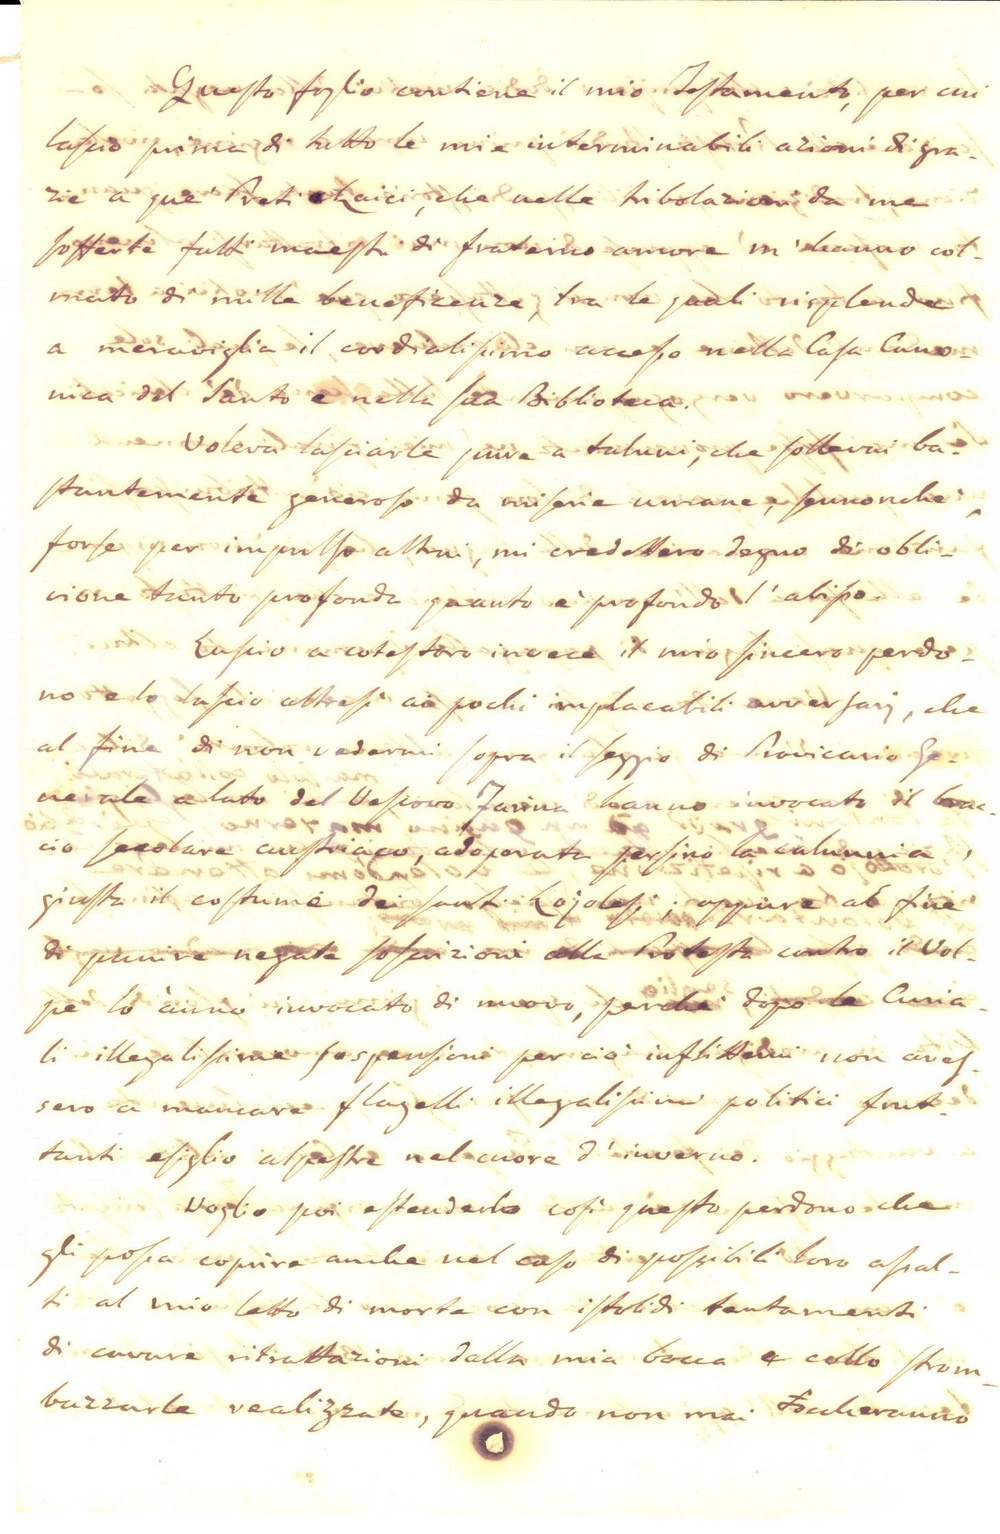 Questo foglio contiene il mio Testamento, per cui
lascio prima di tutto le mie interminabili azioni di gra-
zie a que' Preti e Laici, che nelle tribolazioni da me
sofferte fatti maestri di fraterno amore m'hanno col-
mato di mille beneficenze, tra le quali risplende
a meraviglia il cordialissimo accesso nella Casa Cano-
nica del Santo e nella sua Biblioteca.
Voleva lasciarle pure a taluni, che sollevai ba-
stantemente generoso da miserie umane, sennonché,
forse per impulso altrui, mi credettero degno di obli-
vione tanto profonda quanto è profondo l'abisso.
Lascio a cotestoro invece il mio sincero perdo-
no e lo lascio altresì ai pochi implacabili avversarj, che
al fine di non vedermi sopra il seggio di Provicario Ge-
nerale a lato del Vescovo Farina hanno invocato il brac-
cio secolare austriaco, adoperata persino la calunnia,
giusta il costume dei santi Lojolesi; oppure al fine
di punire negate soscrizioni alla Protesta contro il Vol-
pe lo ànno invocato di nuovo, perchè dopo le Curia-
li illegalissime sospensioni per ciò inflittemi non aves-
sero a mancare flagelli illegalissimi politici frut-
tanti esiglio alpestre nel cuore d'inverno.
Voglio poi estenderlo così questo perdono che
gli possa coprire anche nel caso di possibili loro assal-
ti al mio letto di morte con istolidi tentamenti
di cavare ritrattazioni dalla mia bocca e collo strom-
bazzarle realizzate, quando non mai